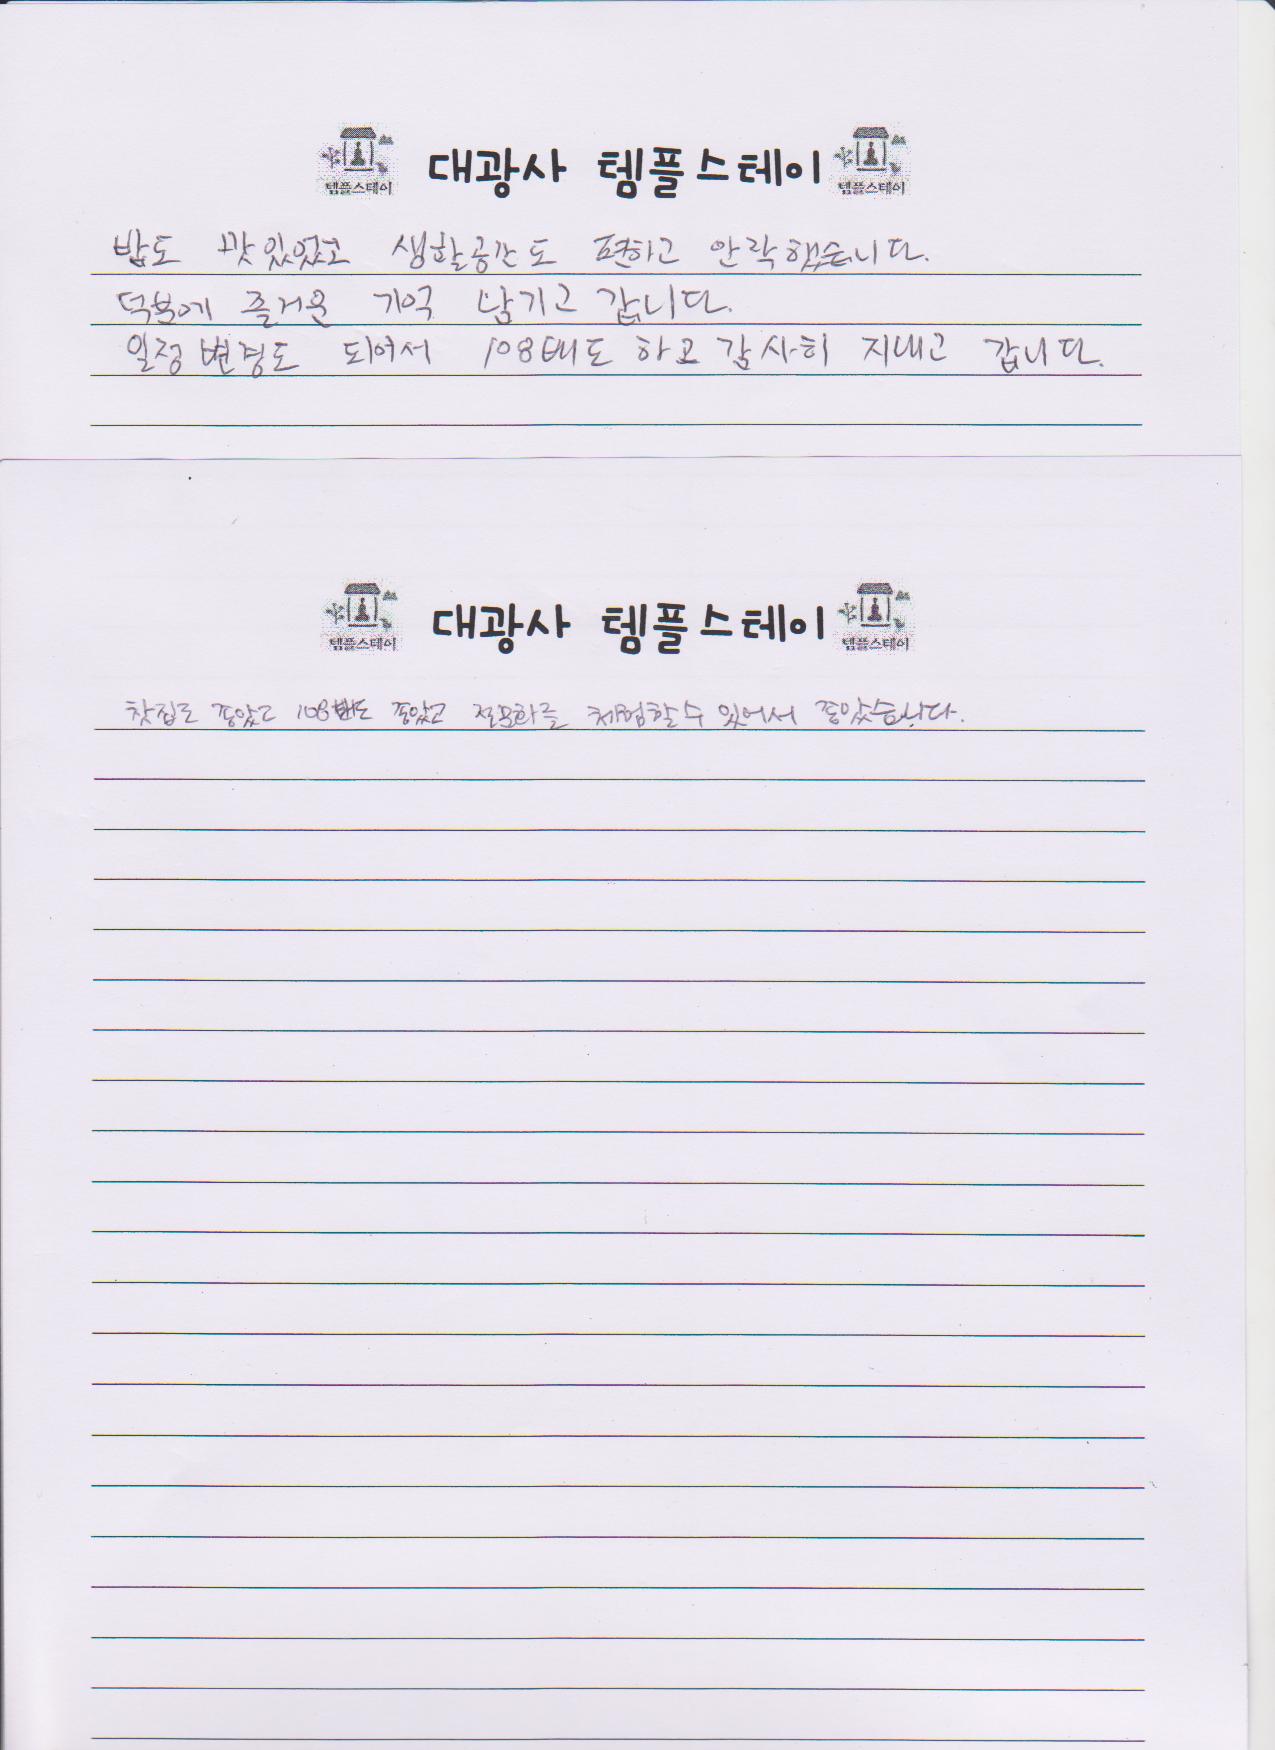 대광사 템플스테이
템플스테이
템플스테이
밥도 맛있었고 생활공간도 편하고 안락했습니다.
덕분에 즐거운 기억 남기고 갑니다.
일정변경도 되어서 108배도 하고 감사히 지내고 갑니다.
대광사 템플스테이
템플스테이
템플스테이
찻집도 좋았고 108배도 좋았고 절문화를 체험할 수 있어서 좋았습니다.